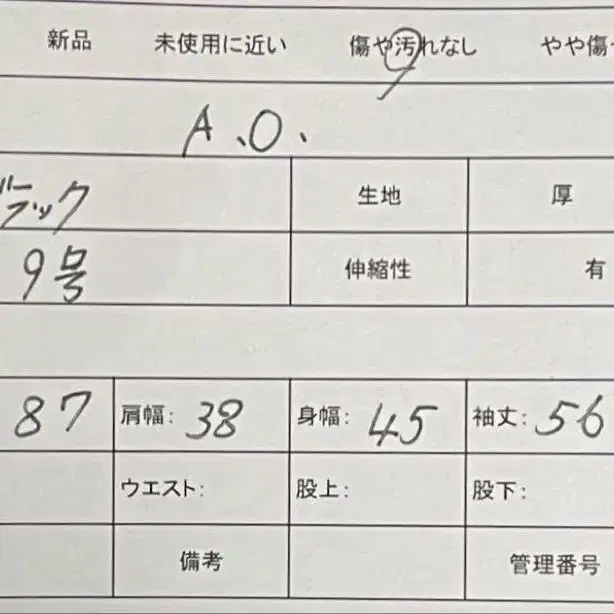 新品 未使用に近い 傷や汚れなし やや傷
A.O.
ブラック 生地 厚
9号 伸縮性 有
87 肩幅: 38 身幅: 45 袖丈: 56
ウエスト: 股上: 股下:
備考 管理番号